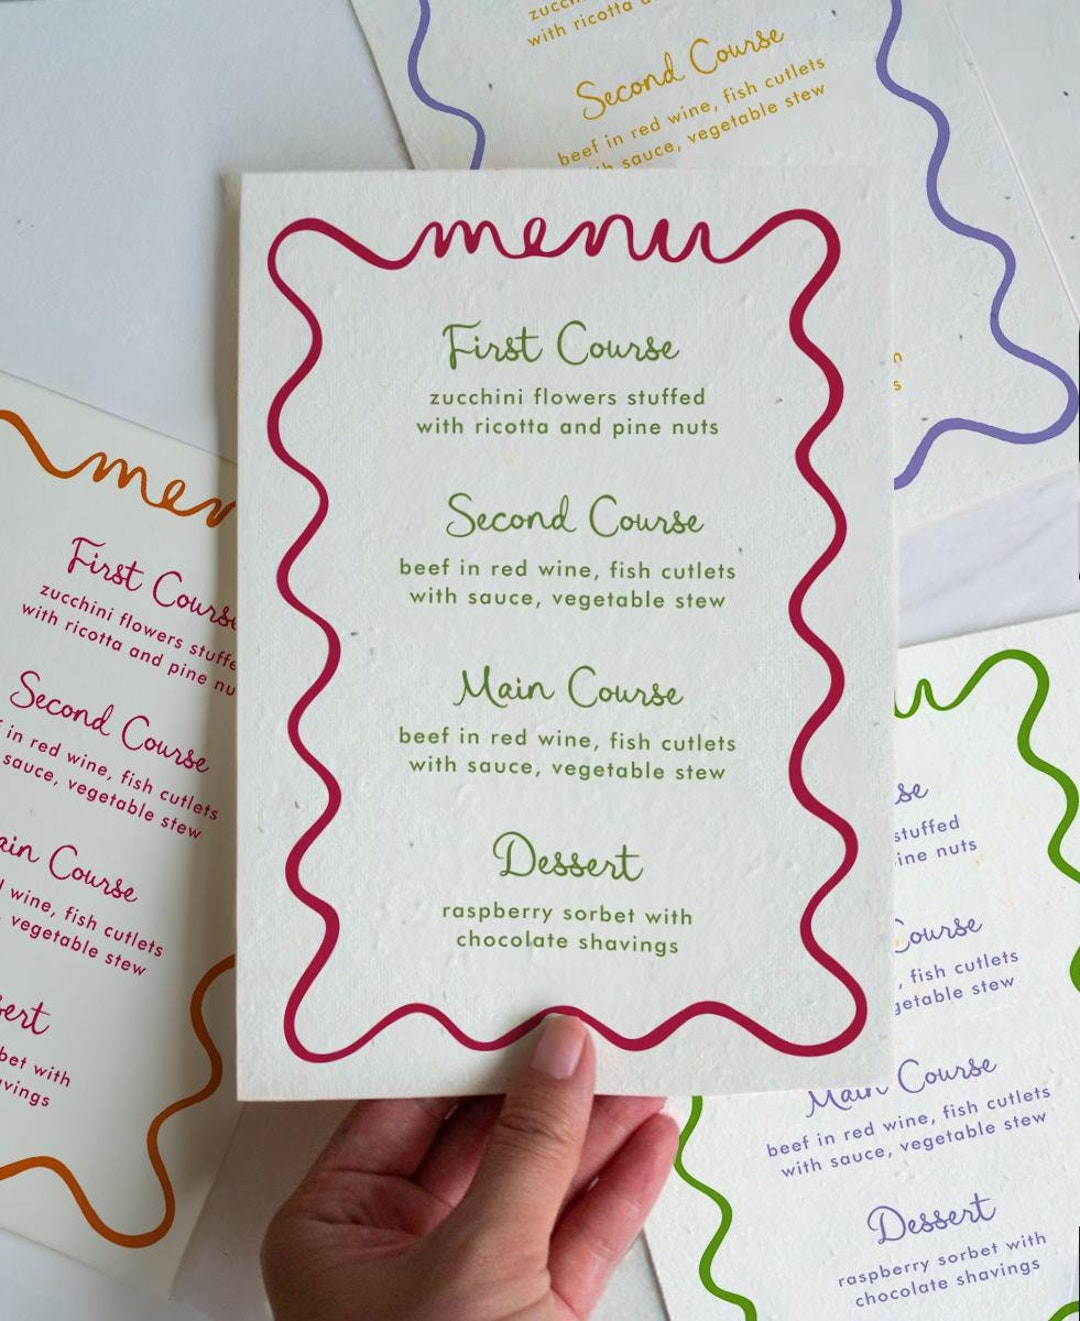 zucc
with ricotta a
Second Course
beef in red wine, fish cutlets
sauce, vegetable stew
menu
First Course
zucchini flowers stuffed
with ricotta and pine nuts
Second Course
beef in red wine, fish cutlets
with sauce, vegetable stew
Main Course
beef in red wine, fish cutlets
with sauce, vegetable stew
Dessert
raspberry sorbet with
chocolate shavings
men
First Course
zucchini flowers stuffe
with ricotta and pine nu
Second Course
in red wine, fish cutlets
sauce, vegetable stew
ain Course
wine, fish cutlets
, vegetable stew
sert
bet with
vings
n
s
u
se
stuffed
ine nuts
Course
, fish cutlets
getable stew
Main Course
beef in red wine, fish cutlets
with sauce, vegetable stew
Dessert
raspberry sorbet with
chocolate shavings